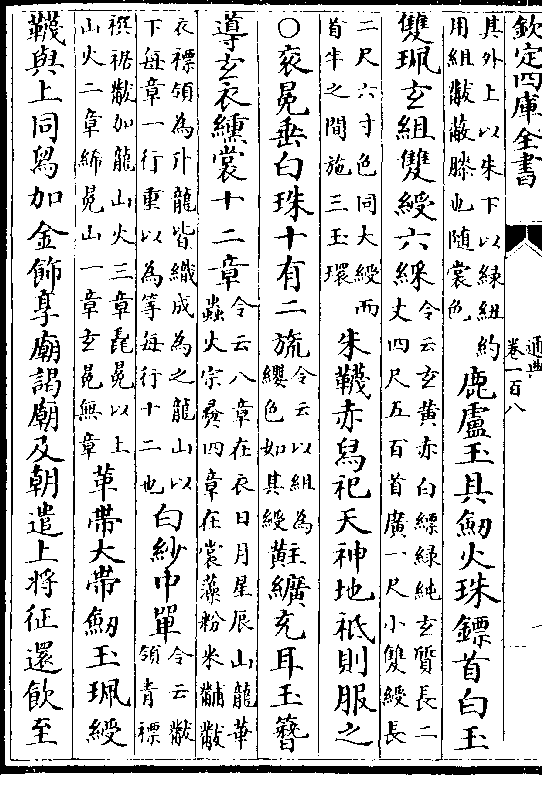 欽定四庫全書
通典
卷一百八
其外上以朱下以綠紐約
用組黻蔽膝也隨裳色
鹿盧玉具劒火珠鏢首白玉
雙珮玄組雙綬六綵
令云玄黄赤白縹緑純玄質長二
丈四尺五百首廣一尺小雙綬長
二尺六寸色同大綬而
首半之間施三玉環
朱韈赤舄祀天神地祇則服之
○衮冕垂白珠十有二旒
令云以組為
纓色如其綬
黈纊充耳玉簪
導玄衣纁裳十二章
令云八章在衣日月星辰山龍華
蟲火宗彞四章在裳藻粉米黼黻
衣褾領為升龍皆織成為之龍山以
下每章一行重以為等每行十二也
白紗中單
令云黻
領青褾
襈裾黻加龍山火三章毳冕以上
山火二章絺冕山一章玄冕無章
革帶大帶劒玉珮綬
韈與上同舄加金飾享廟謁廟及朝遣上將征還飲至